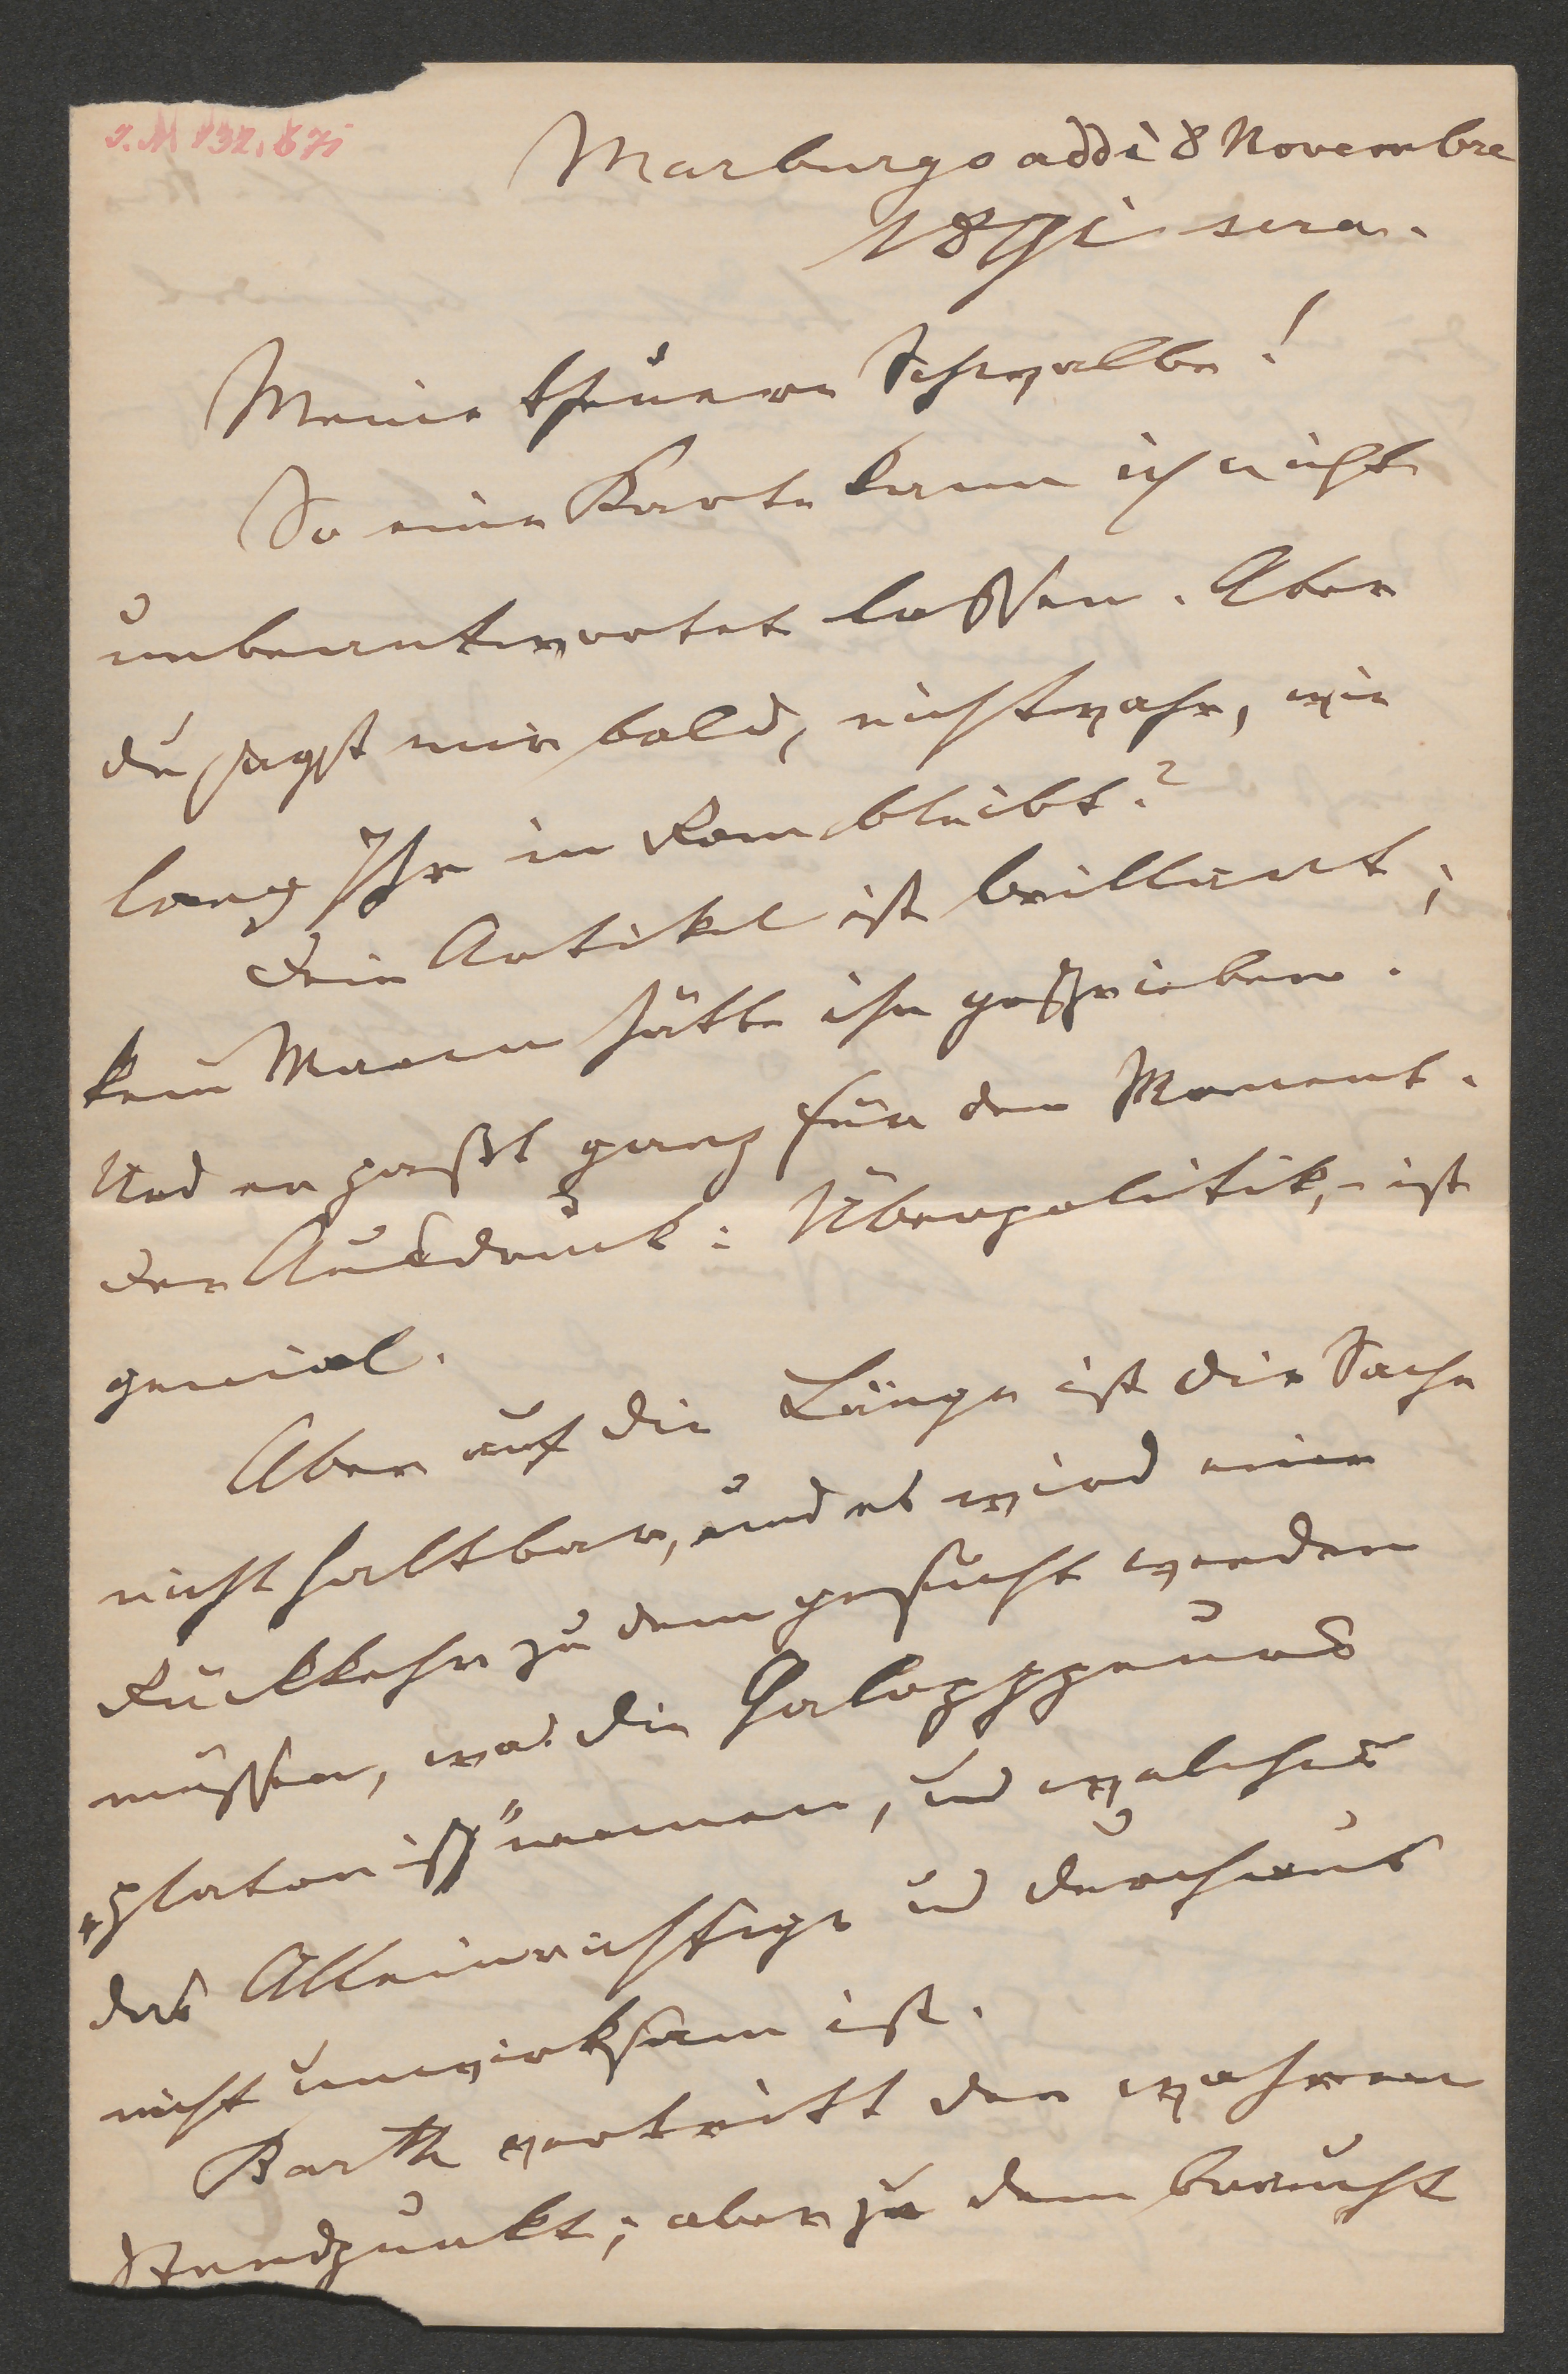 Marburgo addì 8 Novembre
sera.
Meine theuere Schwalbe!
So eine Karte kann ich nicht
unbeantwortet lassen. Aber
du sagst mir bald, nichtwahr, wie
lang Ihr in Rom bleibt?
Dein Artikel ist brillant;
kein Mann hätte ihn geschrieben.
Und er paßt ganz für den Moment.
Der Ausdruck: Überpolitik, – ist
genial.
Aber auf die Länge ist die Sache
nicht haltbar, und es wird eine
Rückkehr zu dem gesucht werden
müssen, was die
"platonisch" nennen, und welches
das Alleinrichtige und durchaus
nicht unwirksam ist.
Barth vertritt den wahren
Standpunkt; aber zu dem braucht